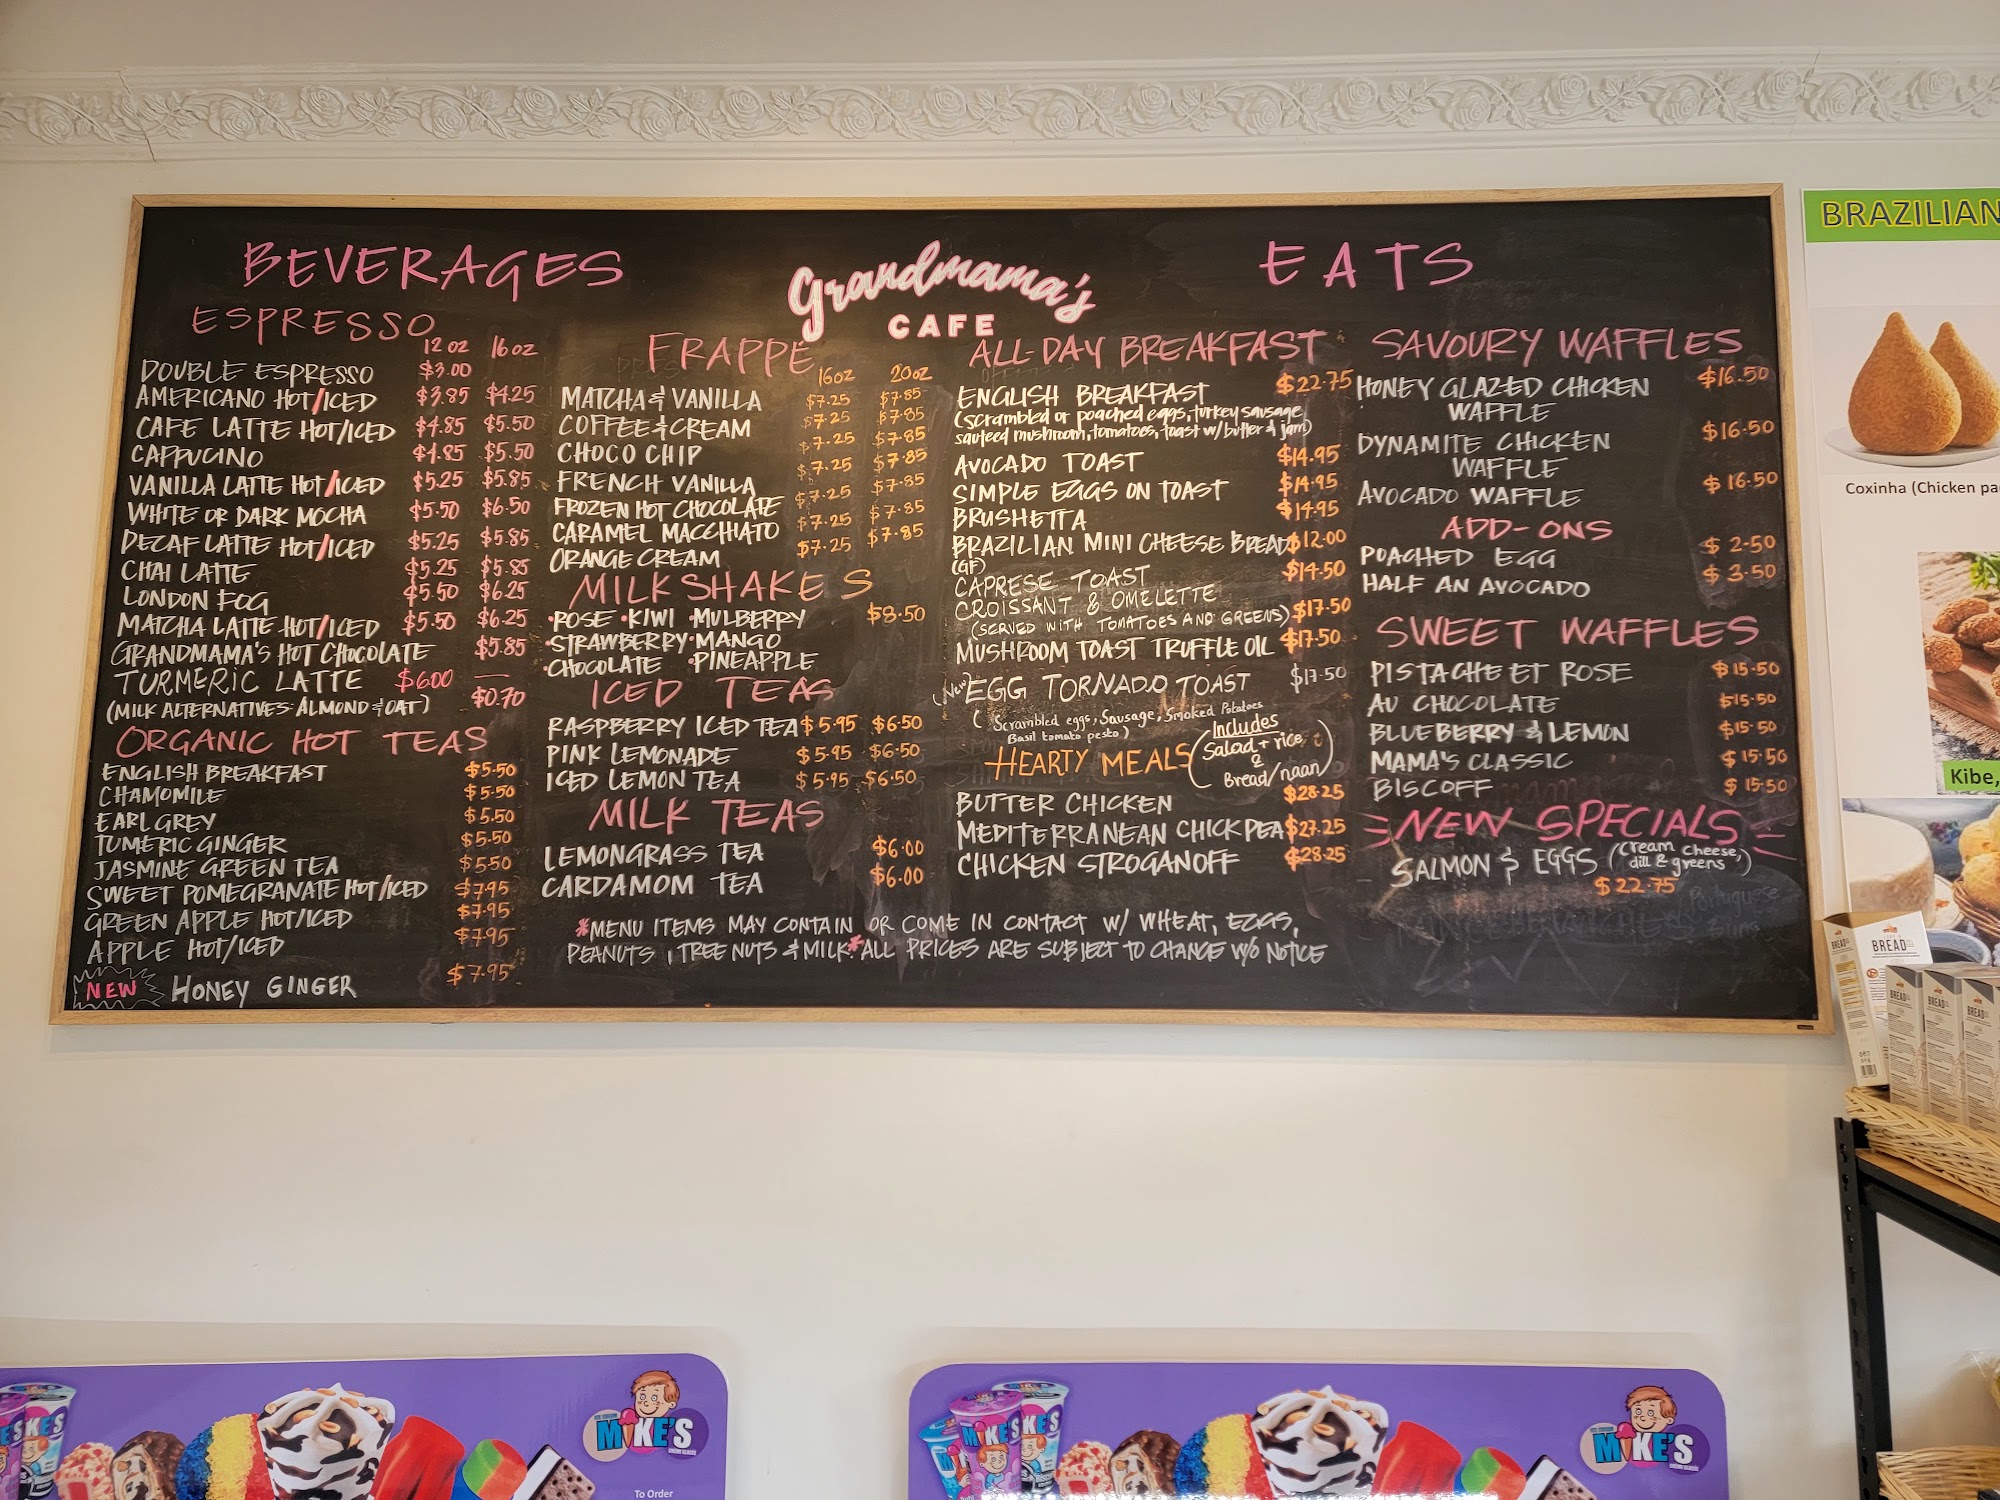 BEVERAGES
Grandmama's
CAFE
EATS
ESPRESSO
12 oz 16 oz
DOUBLE ESPRESSO $3.00
AMERICANO HOT/ICED $3.85 $4.25
CAFE LATTE HOT/ICED $4.85 $5.50
CAPPUCINO $4.85 $5.50
VANILLA LATTE HOT/ICED $5.25 $5.85
WHITE OR DARK MOCHA $5.50 $6.50
DECAF LATTE HOT/ICED $5.25 $5.85
CHAI LATTE $5.25 $5.85
LONDON FOG $5.50 $6.25
MATCHA LATTE HOT/ICED $5.50 $6.25
GRANDMAMA'S HOT CHOCOLATE $5.85
TURMERIC LATTE $6.00 —
(MILK ALTERNATIVES: ALMOND & OAT) $0.70
ORGANIC HOT TEAS
ENGLISH BREAKFAST $5.50
CHAMOMILE $5.50
EARL GREY $5.50
TUMERIC GINGER $5.50
JASMINE GREEN TEA $5.50
SWEET POMEGRANATE HOT/ICED $7.95
GREEN APPLE HOT/ICED $7.95
APPLE HOT/ICED $7.95
NEW HONEY GINGER $7.95
FRAPPE
16oz 20oz
MATCHA & VANILLA $7.25 $7.85
COFFEE & CREAM $7.25 $7.85
CHOCO CHIP $7.25 $7.85
FRENCH VANILLA $7.25 $7.85
FROZEN HOT CHOCOLATE $7.25 $7.85
CARAMEL MACCHIATO $7.25 $7.85
ORANGE CREAM $7.25 $7.85
MILKSHAKES
•ROSE •KIWI •MULBERRY $8.50
•STRAWBERRY •MANGO
•CHOCOLATE •PINEAPPLE
ICED TEAS
RASPBERRY ICED TEA $5.95 $6.50
PINK LEMONADE $5.95 $6.50
ICED LEMON TEA $5.95 $6.50
MILK TEAS
LEMONGRASS TEA $6.00
CARDAMOM TEA $6.00
*MENU ITEMS MAY CONTAIN OR COME IN CONTACT W/ WHEAT, EGGS,
PEANUTS, TREE NUTS & MILK *ALL PRICES ARE SUBJECT TO CHANGE W/O NOTICE
ALL-DAY BREAKFAST
ENGLISH BREAKFAST $22.75
(scrambled or poached eggs, turkey sausage,
sauteed mushroom, tomatoes, toast w/ butter & jam)
AVOCADO TOAST $14.95
SIMPLE EGGS ON TOAST $14.95
BRUSHETTA $14.95
BRAZILIAN MINI CHEESE BREAD $12.00
(GF)
CAPRESE TOAST $14.50
CROISSANT & OMELETTE $17.50
(SERVED WITH TOMATOES AND GREENS)
MUSHROOM TOAST TRUFFLE OIL $17.50
(New) EGG TORNADO TOAST $17.50
(Scrambled eggs, Sausage, Smoked Potatoes
Basil tomato pesto)
HEARTY MEALS (Includes
Salad + rice
&
Bread/naan)
BUTTER CHICKEN $28.25
MEDITERRANEAN CHICKPEA $27.25
CHICKEN STROGANOFF $28.25
SAVOURY WAFFLES
HONEY GLAZED CHICKEN $16.50
WAFFLE
DYNAMITE CHICKEN $16.50
WAFFLE
AVOCADO WAFFLE $16.50
ADD-ONS
POACHED EGG $2.50
HALF AN AVOCADO $3.50
SWEET WAFFLES
PISTACHE ET ROSE $15.50
AU CHOCOLATE $15.50
BLUEBERRY & LEMON $15.50
MAMA'S CLASSIC $15.50
BISCOFF $15.50
NEW SPECIALS
SALMON & EGGS (cream cheese,
dill & greens)
$22.75
Portuguese
BRAZILIAN
Coxinha (Chicken pa
Kibe,
BREAD
BREAD
BREAD
BREAD
MIKE'S
To Order
MIKE'S
MIKE'S